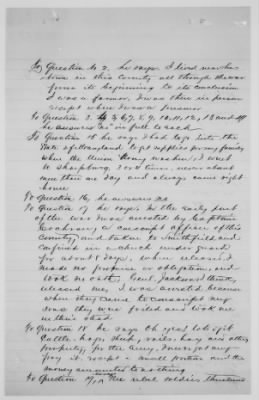 To Question 2. he says I lived near
town in this County all through the war
from its beginning to its conclusion
I was a farmer, I was there in person
except when I was a prisoner
To Question 3.
he answers no in full to each
To Question 14 he says I had to go into the
State of Maryland to get supplies for my family
when the Union Army was here, I went
to Sharpsburg, 3 or 4 times, never about
more than one day and always came right
home
To Question 16, he answers no
To Question 17 he says In the early part
of the war I was arrested by Captain
Cochran, a conscript officer of this
County and taken to Smithfield and
confined in a church under guard
for about 8 days, when released I
made no promise or obligation, and
took no oath, Genl. Jackson
released me, I was arrested because
when they came to conscript my
sons they were foiled and took me
in their stead
To Question 18 he says Oh yes! lots of it
Cattle, hogs, sheep, rails, hay and other
property, for the army, I never got any
pay it, except a small portion and the
money amounted to nothing
To Question 19 The rebel soldiers threatened